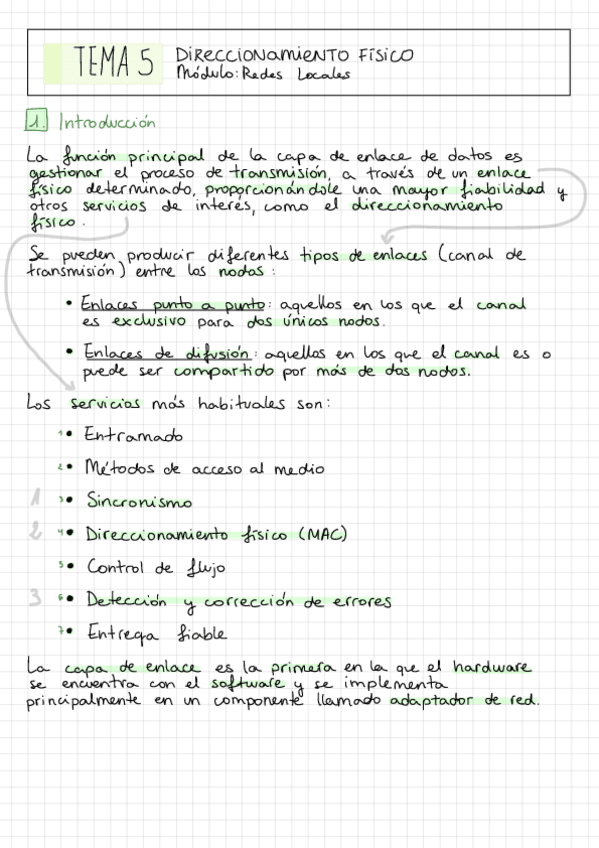 TEMA 5 DIRECCIONAMIENTO FÍSICO
Módulo: Redes Locales
1. Introducción
La función principal de la capa de enlace de datos es
gestionar el proceso de transmisión, a través de un enlace
físico determinado, proporcionándole una mayor fiabilidad y
otros servicios de interés, como el direccionamiento
físico.
Se pueden producir diferentes tipos de enlaces (canal de
transmisión) entre los nodos:
• Enlaces punto a punto: aquellos en los que el canal
es exclusivo para dos únicos nodos.
• Enlaces de difusión: aquellos en los que el canal es o
puede ser compartido por más de dos nodos.
Los servicios más habituales son:
1• Entramado
2• Métodos de acceso al medio
1 3• Sincronismo
2 4• Direccionamiento físico (MAC)
5• Control de flujo
3 6• Detección y corrección de errores
7• Entrega fiable
La capa de enlace es la primera en la que el hardware
se encuentra con el software y se implementa
principalmente en un componente llamado adaptador de red.